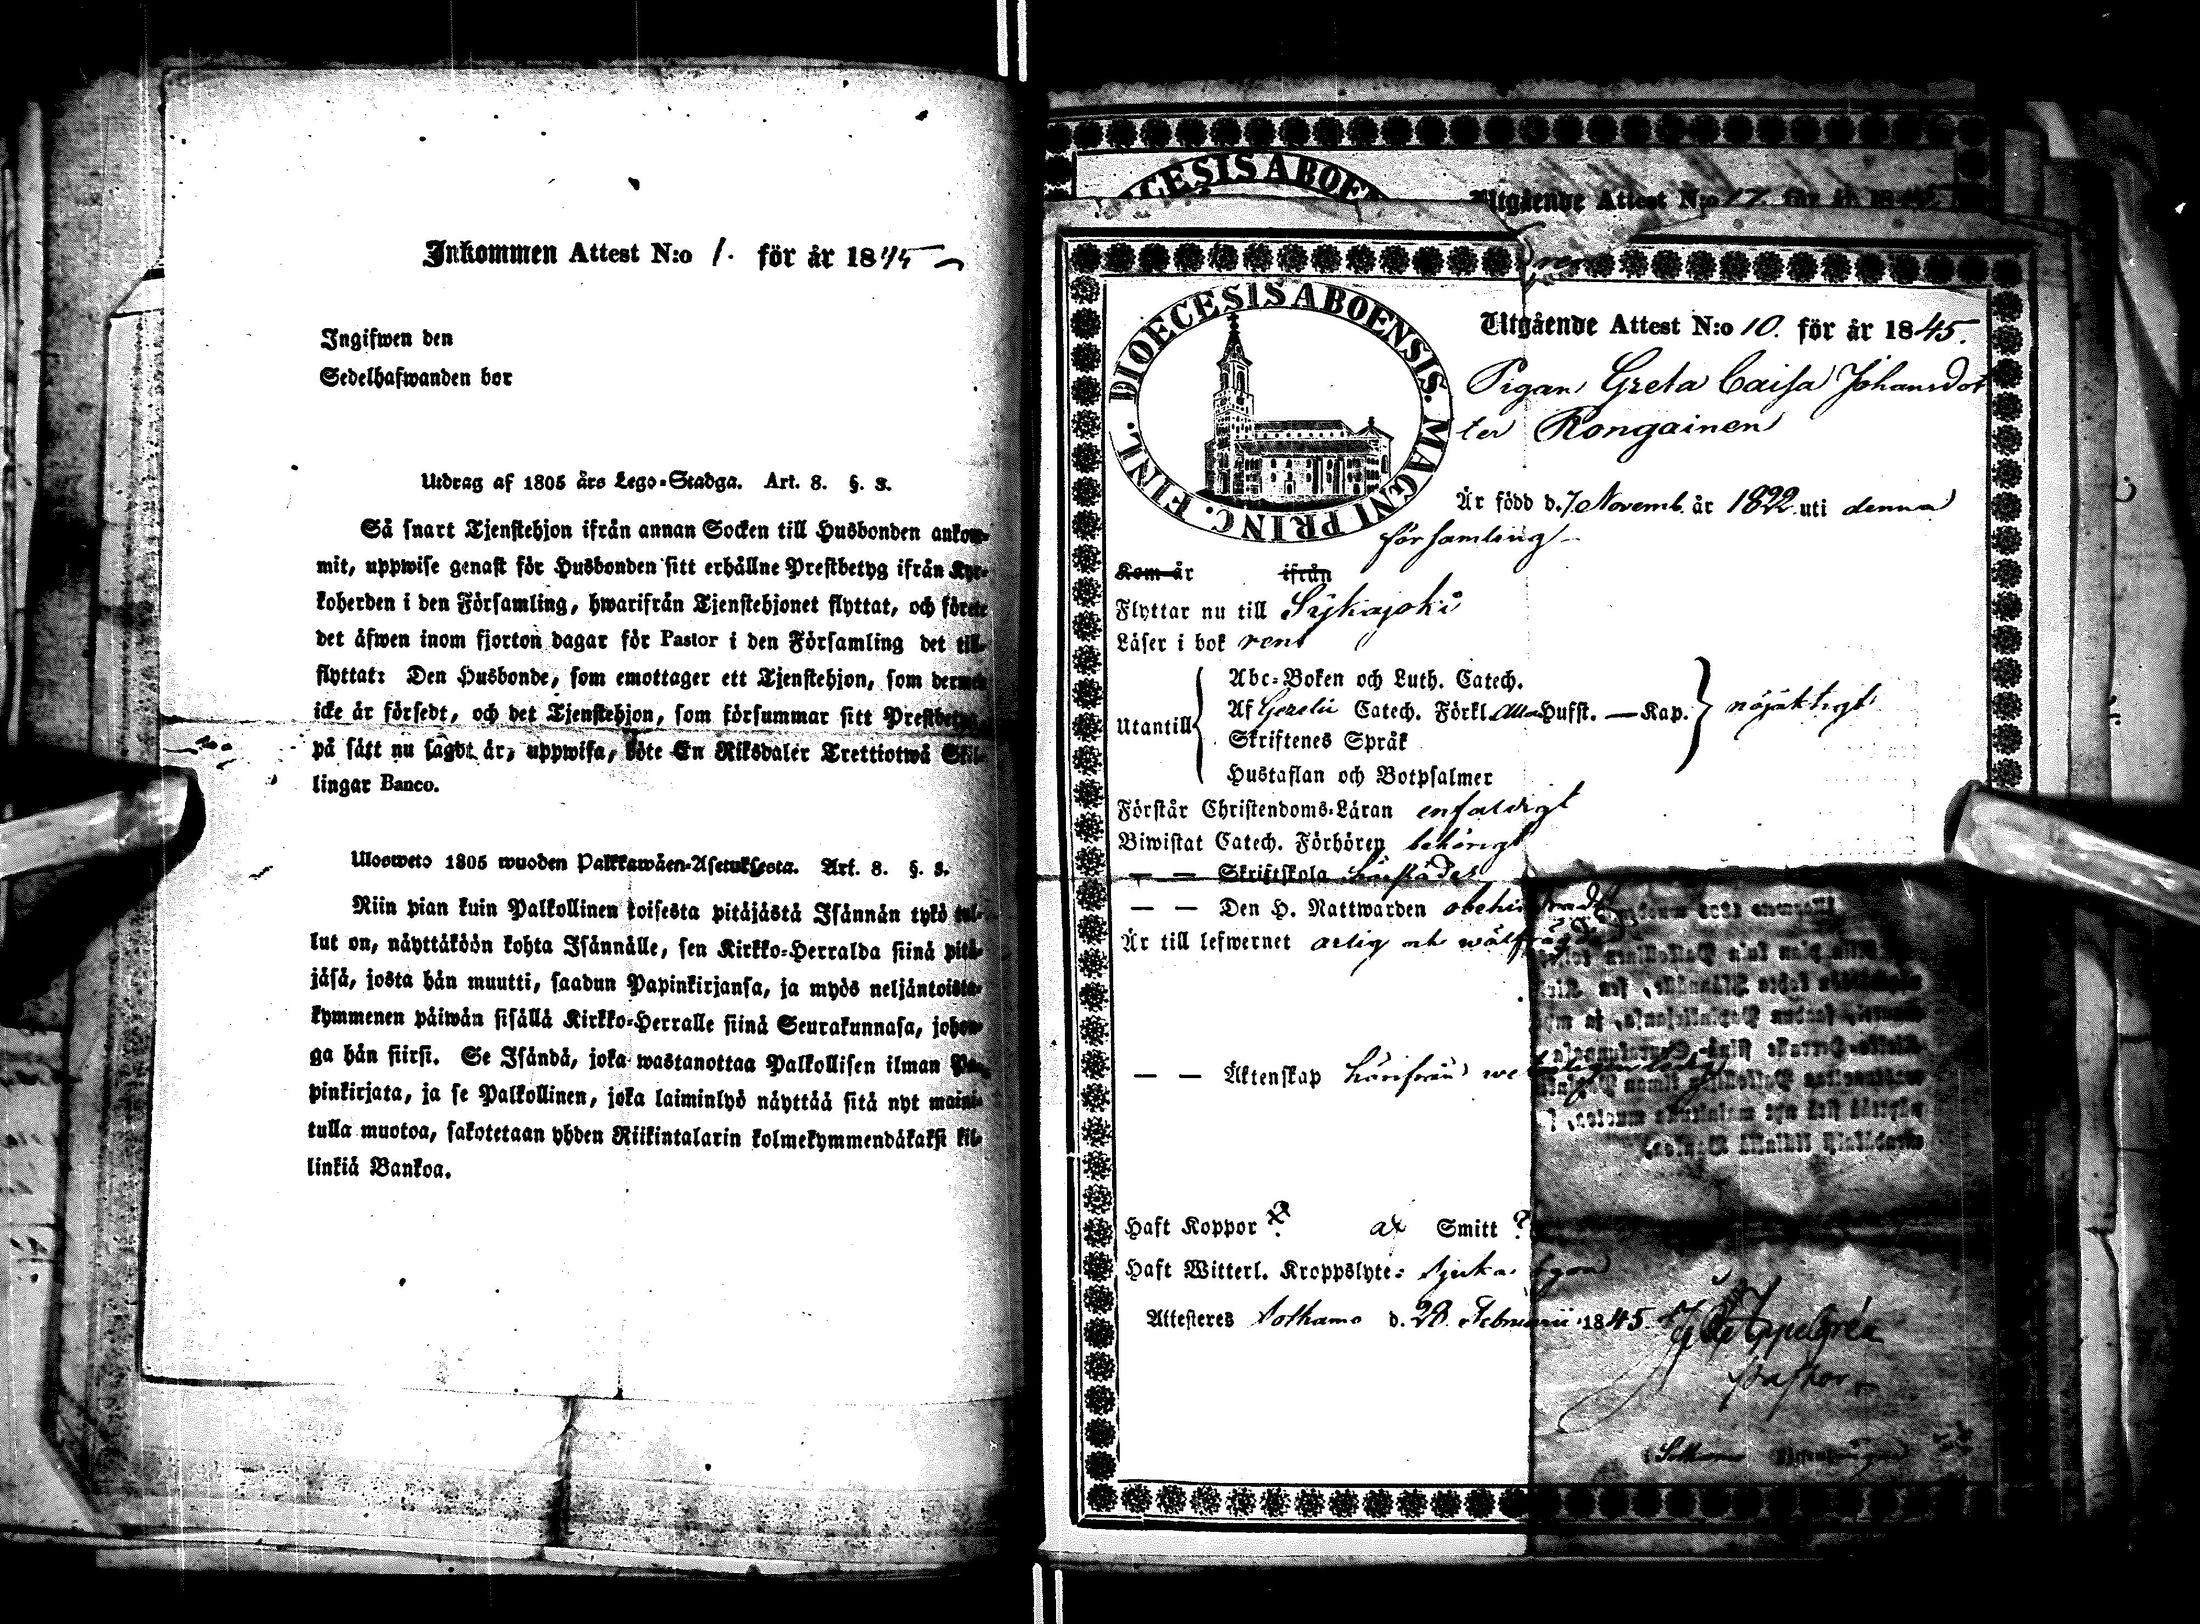 Inkommen Attest N:o 1. för år 1845
Ingifwen den
Sedelhafwanden bor
Utdrag af 1805 års Lego-Stadga. Art. 8. §. 3.
Så snart Tjenstehjon ifrån annan Socken till Husbonden ankom-
mit, uppwise genast för Husbonden sitt erhållne Prestbetyg ifrån Kyr-
koherden i den Församling, hwarifrån Tjenstehjonet flyttat, och förete
det äfwen inom fjorton dagar för Pastor i den Församling det till-
flyttat: Den Husbonde, som emottager ett Tjenstehjon, som dermed
icke är försedt, och det Tjenstehjon, som försummar sitt Prestbetyg,
på sätt nu sagdt är, uppwisa, böte En Riksdaler Trettiotwå Skil-
lingar Banco.
Ulosweto 1805 wuoden Palkkawäen-Asetuksesta. Art. 8. §. 3.
Niin pian kuin Palkollinen toisesta pitäjästä Isännän tykö tul-
lut on, näyttäköön kohta Isännälle, sen Kirkko-Herralda siinä pitä-
jäsä, josta hän muutti, saadun Papinkirjansa, ja myös neljäntoista-
kymmenen päiwän sisällä Kirkko-Herralle siinä Seurakunnasa, johon-
ga hän siirsi. Se Isändä, joka wastanottaa Palkollisen ilman Pa-
pinkirjata, ja se Palkollinen, joka laiminlyö näyttää sitä nyt maini-
tulla muotoa, sakotetaan yhden Riikintalarin kolmekymmendäkaksi kil-
linkiä Bankoa.
Utgående Attest N:o 17. för år 18
DIOECESIS ABOENSIS. MAGNI PRINC. FINL.
Utgående Attest N:o 10. för år 1845.
Pigan Greta Caisa Johansdot
ter Rongainen
Är född d. 7 Novemb. år 1822 uti denna
församling
Kom år ifrån
Flyttar nu till Sijkajoki
Läser i bok rent
Utantill
Abc-Boken och Luth. Catech.
Af Gezelii Catech. Förkl. alla Hufst. — Kap.
Skriftenes Språk
Hustaflan och Botpsalmer
nöjaktigt
Förstår Christendoms-Läran enfaldigt
Biwistat Catech. Förhören behörigt
— — Skriftskola härstädes
— — Den H. Nattwarden obehindradt
Är till lefwernet ärlig och wälfrägdad
— — Äktenskap härifrån weterligen ledig
Haft Koppor ? ax Smitt ?
Haft Witterl. Kroppslyte: sjuka ögon
Attesteres Sotkamo d. 28 Februarii 1845.
Appelgrén
Pastor
Sotkamo